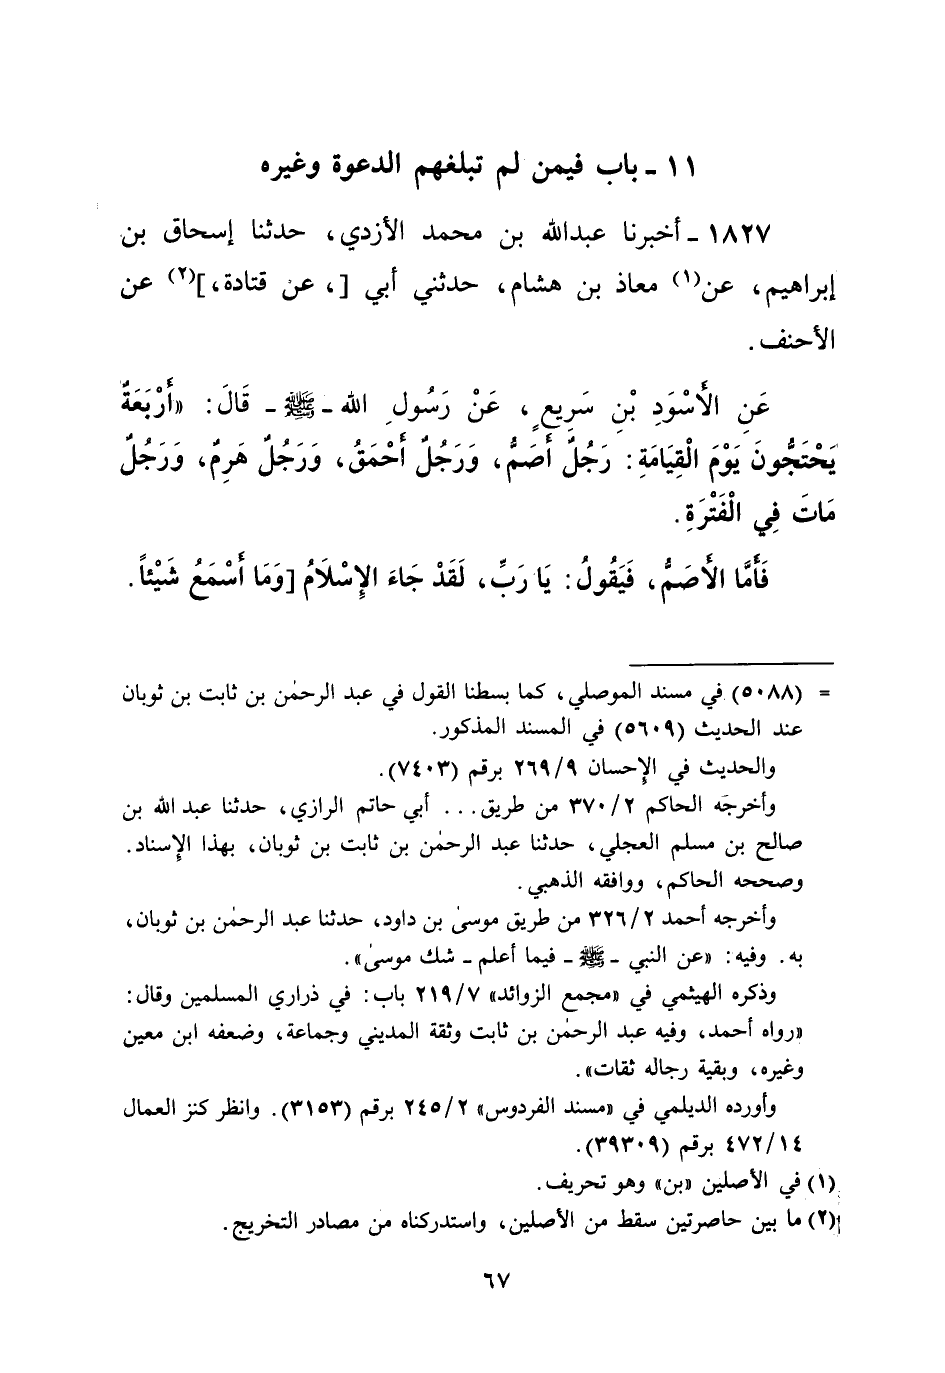 ١١ ـ باب فيمن لم تبلغهم الدعوة وغيره
١٨٢٧ ـ أخبرنا عبدالله بن محمد الأزدي، حدثنا إسحاق بن
إبراهيم، عن(١) معاذ بن هشام، حدثني أبي [، عن قتادة،](٢) عن
الأحنف.
عَنِ الأَسْوَدِ بْنِ سَرِيعٍ، عَنْ رَسُولِ الله ـ ﷺ ـ قَالَ: «أَرْبَعَةٌ
يَحْتَجُّونَ يَوْمَ الْقِيَامَةِ: رَجُلٌ أَصَمُّ، وَرَجُلٌ أَحْمَقُ، وَرَجُلٌ هَرِمٌ، وَرَجُلٌ
مَاتَ فِي الْفَتْرَةِ.
فَأَمَّا الأَصَمُّ، فَيَقُولُ: يَا رَبِّ، لَقَدْ جَاءَ الإِسْلَامُ [وَمَا أَسْمَعُ شَيْئاً.
= (٥٠٨٨) في مسند الموصلي، كما بسطنا القول في عبد الرحمٰن بن ثابت بن ثوبان
عند الحديث (٥٦٠٩) في المسند المذكور.
والحديث في الإحسان ٢٦٩/٩ برقم (٧٤٠٣).
وأخرجه الحاكم ٣٧٠/٢ من طريق... أبي حاتم الرازي، حدثنا عبد الله بن
صالح بن مسلم العجلي، حدثنا عبد الرحمٰن بن ثابت بن ثوبان، بهذا الإسناد.
وصححه الحاكم، ووافقه الذهبي.
وأخرجه أحمد ٣٢٦/٢ من طريق موسىٰ بن داود، حدثنا عبد الرحمٰن بن ثوبان،
به. وفيه: «عن النبي ـ ﷺ ـ فيما أعلم ـ شك موسىٰ».
وذكره الهيثمي في «مجمع الزوائد» ٢١٩/٧ باب: في ذراري المسلمين وقال:
«رواه أحمد، وفيه عبد الرحمٰن بن ثابت وثقة المديني وجماعة، وضعفه ابن معين
وغيره، وبقية رجاله ثقات».
وأورده الديلمي في «مسند الفردوس» ٢٤٥/٢ برقم (٣١٥٣). وانظر كنز العمال
٤٧٢/١٤ برقم (٣٩٣٠٩).
(١) في الأصلين «بن» وهو تحريف.
(٢) ما بين حاصرتين سقط من الأصلين، واستدركناه من مصادر التخريج.
٦٧